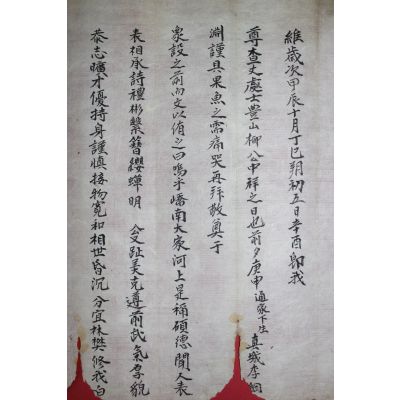 維歲次甲辰十月丁巳朔初五日辛酉卽我
尊査丈處士豊山柳公中祥之日也前夕庚申通家下生眞城李
謹具果魚之需痛哭再拜敬奠于
象設之前而文以侑之曰嗚乎嶠南大家河上是稱碩德聞人表
表相承詩禮彬蔚簪纓蟬明 公趾美克遵前武氣孝貌
恭志曠才優持身謹愼接物寬和相世昏沉分宜林樊修我白